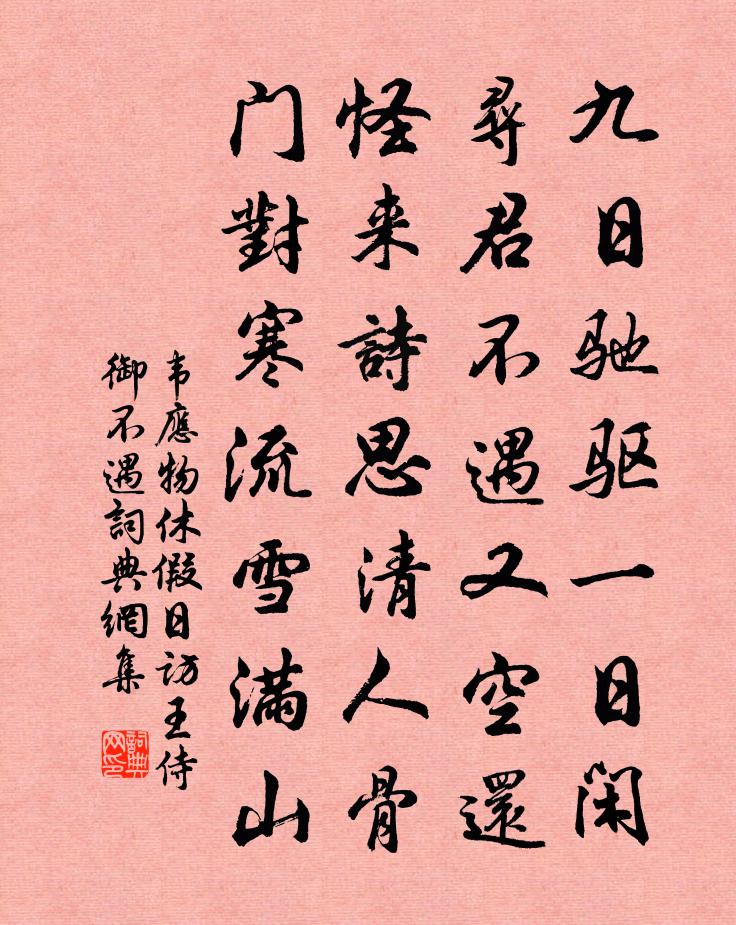 九日驰驱一日闲
尋君不遇又空還
怪来詩思清人骨
门對寒流雪满山
韦應物休假日访王侍
御不遇詞典網集
詞典
网印